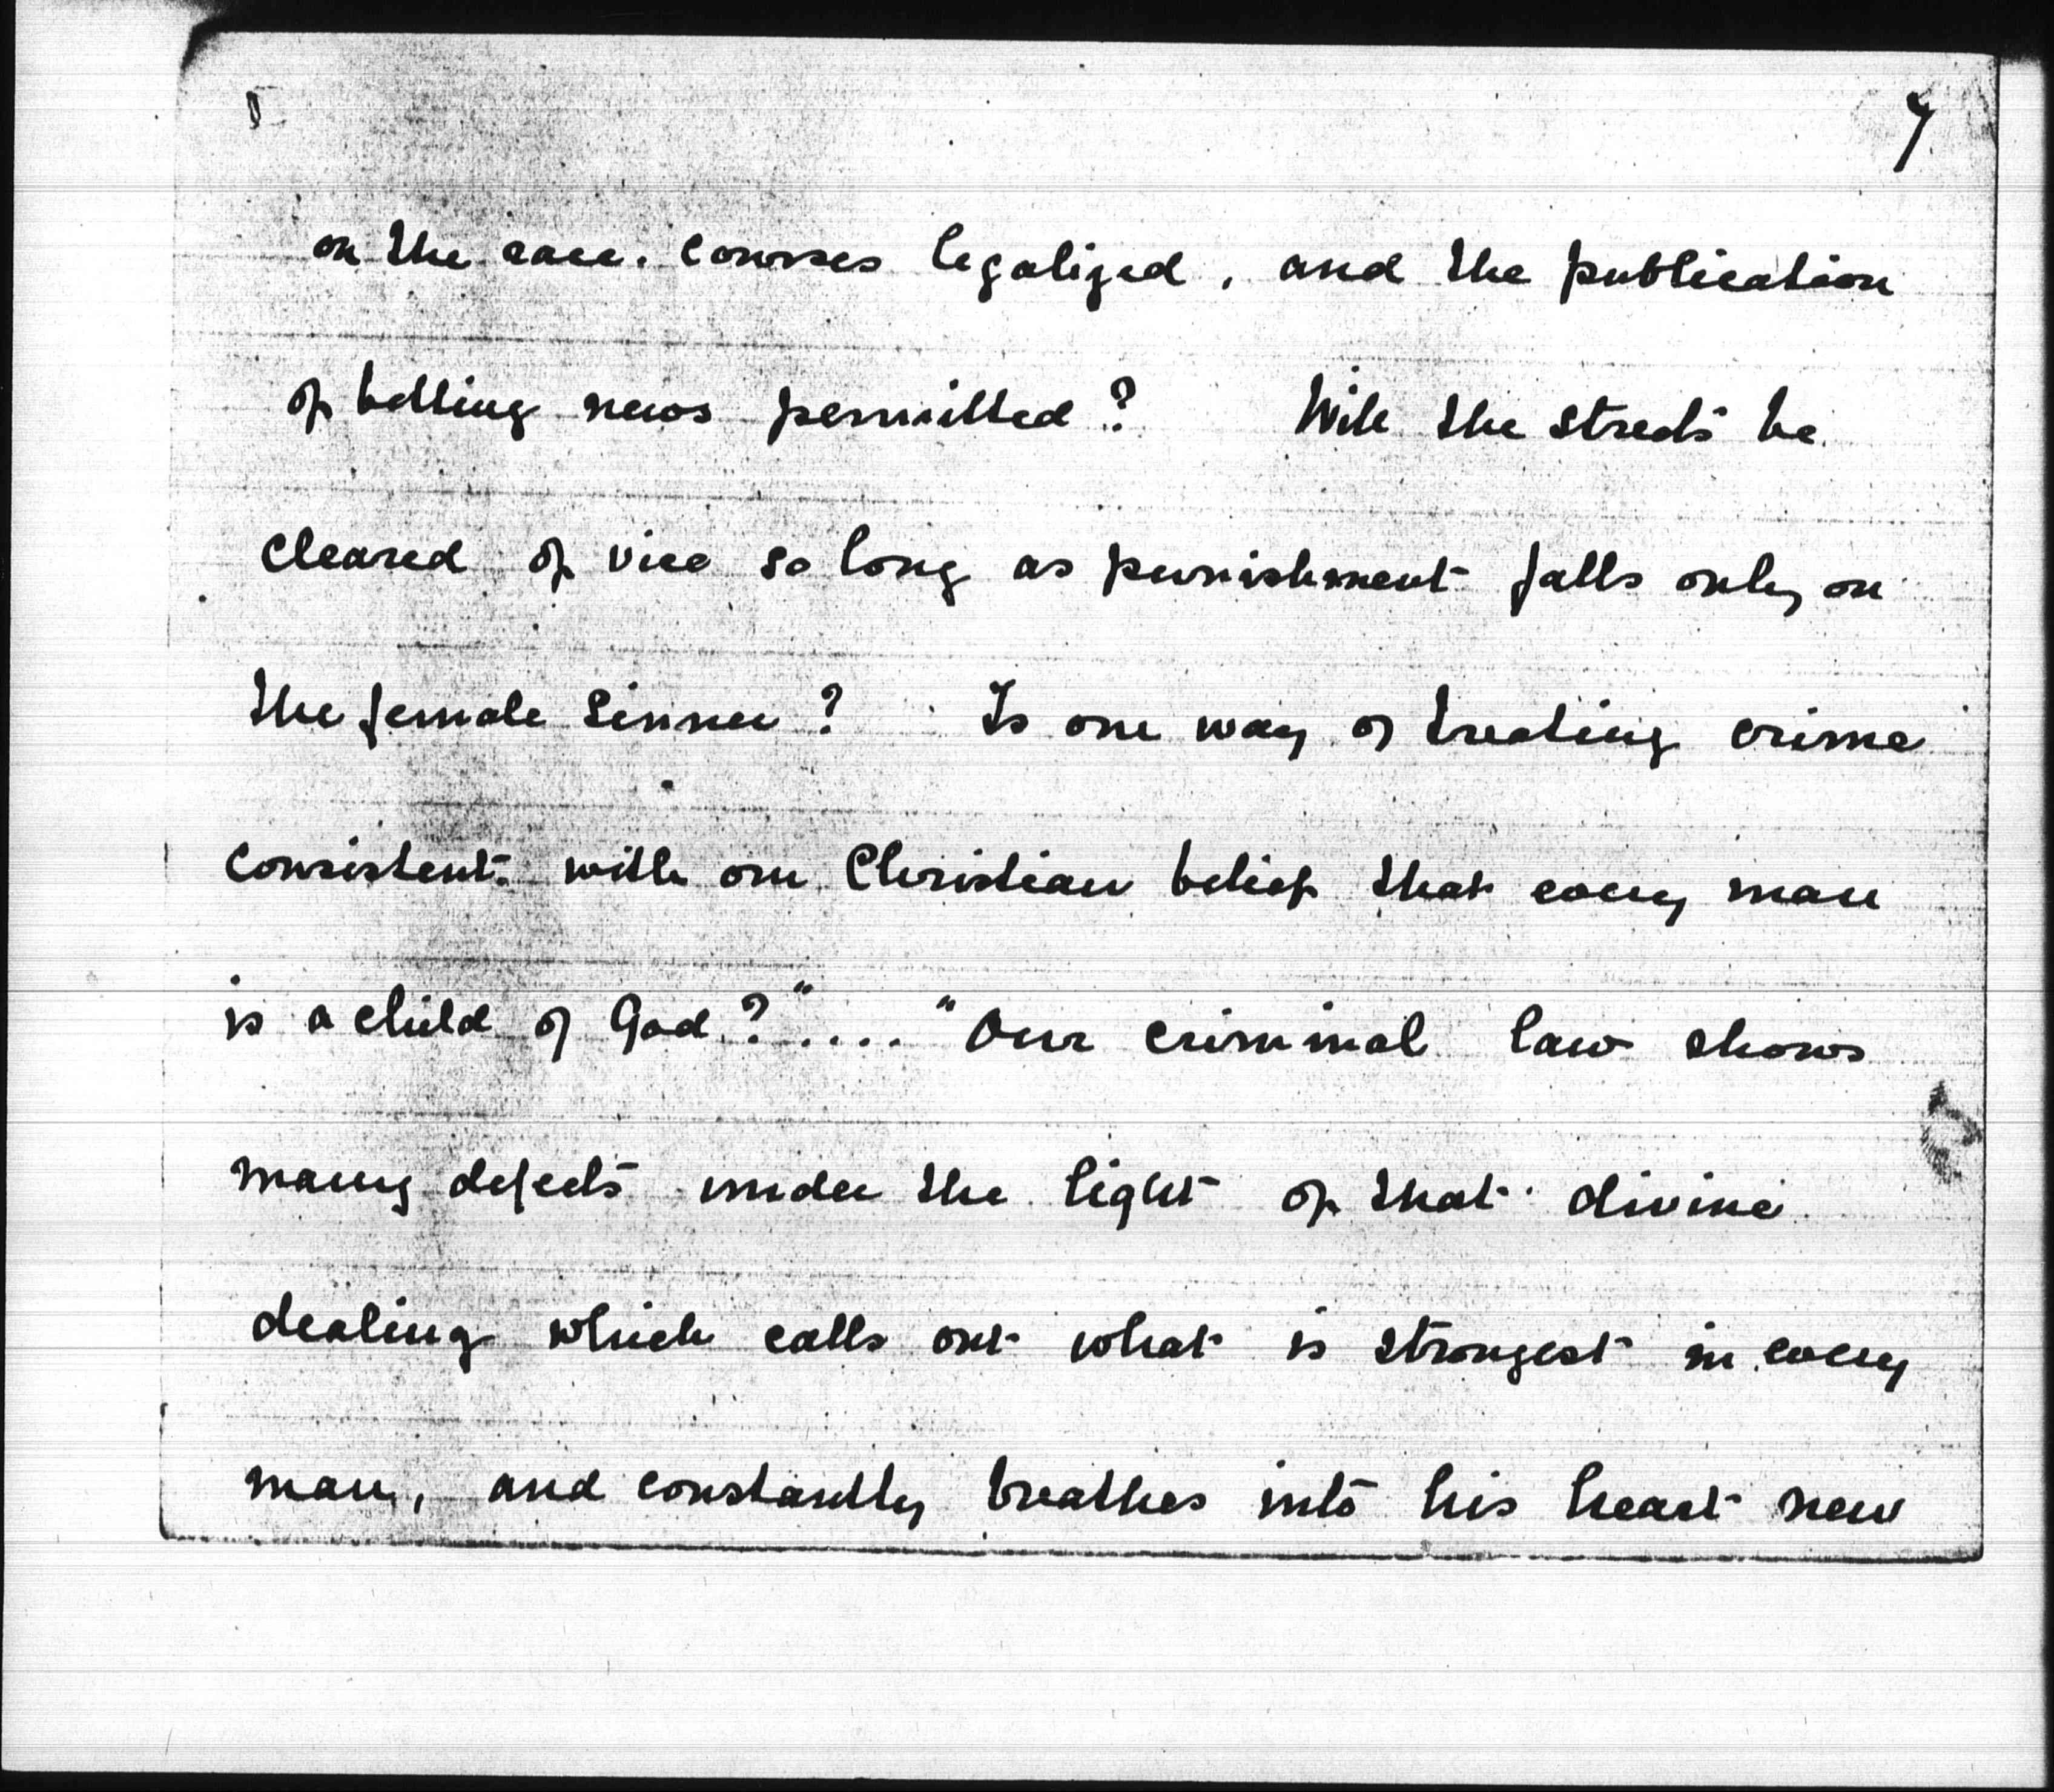 7
on the race. courses legalized, and the publication
of betting news permitted? Will the streets be
cleared of vice so long as punishment falls only on
the female sinner? Is our way of treating crime
consistent with our Christian belief that every man
is a child of God?".... "Our criminal law shows
many defects under the light of that divine
dealing which calls out what is strongest in every
man, and constantly breathes into his heart new